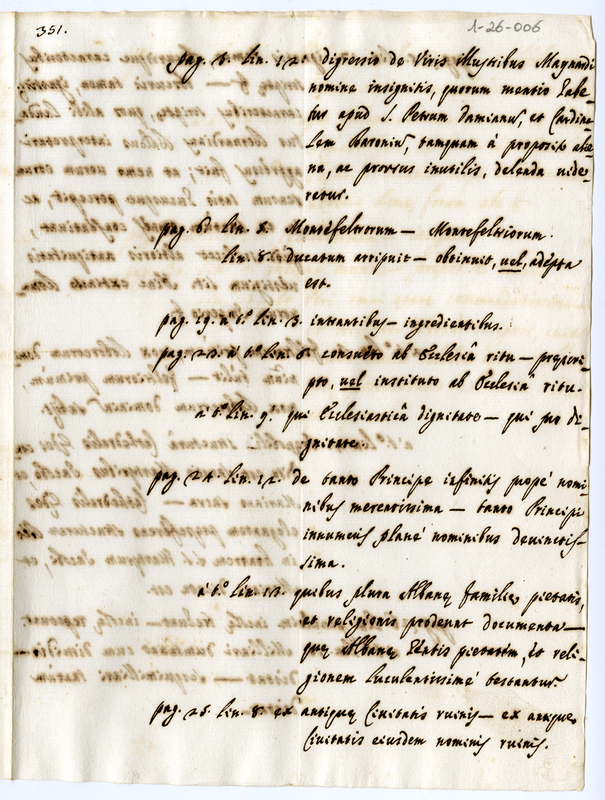 351.
1-26-006
pag. 6. lin. 12. digressio de Viris illustribus Magnardi
nomine insignitis, quorum mentio habe-
tur apud S. Petrum Damianū, et Cardina-
lem Baroniū, tamquam à proposito alie-
na, ac prorsus inutilis, delenda vide-
retur.
pag. 6. lin. 5. Montèfeltrorum — Montefeltriorum.
lin. 8. ducatum arripuit — obtinuit, uel, adépta
est.
pag. 19. à t.º lin. 3. intrantibus — ingredientibus.
pag. 23. à t.º lin. 6. consuéto ab Ecclesiâ ritu — prescri-
pto, uel instituto ab Ecclesiâ ritu.
à t.º lin. 9. qui Ecclesiasticâ dignitate — qui pro di-
gnitate.
pag. 24. lin. 12. de tanto Principe infinitis propé nomi-
nibus merentissima — tanto Principi
innumeris planè nominibus devinctis-
sima.
à t.º lin. 13. quibus plura Albanę familię pietatis,
et religionis prodeunt documenta —
quę Albanę Gentis pietatem, et reli-
gionem luculentissimè testantur.
pag. 25. lin. 8. ex antiquę Civitatis ruinis — ex antiquę
Civitatis eiusdem nominis ruinis.